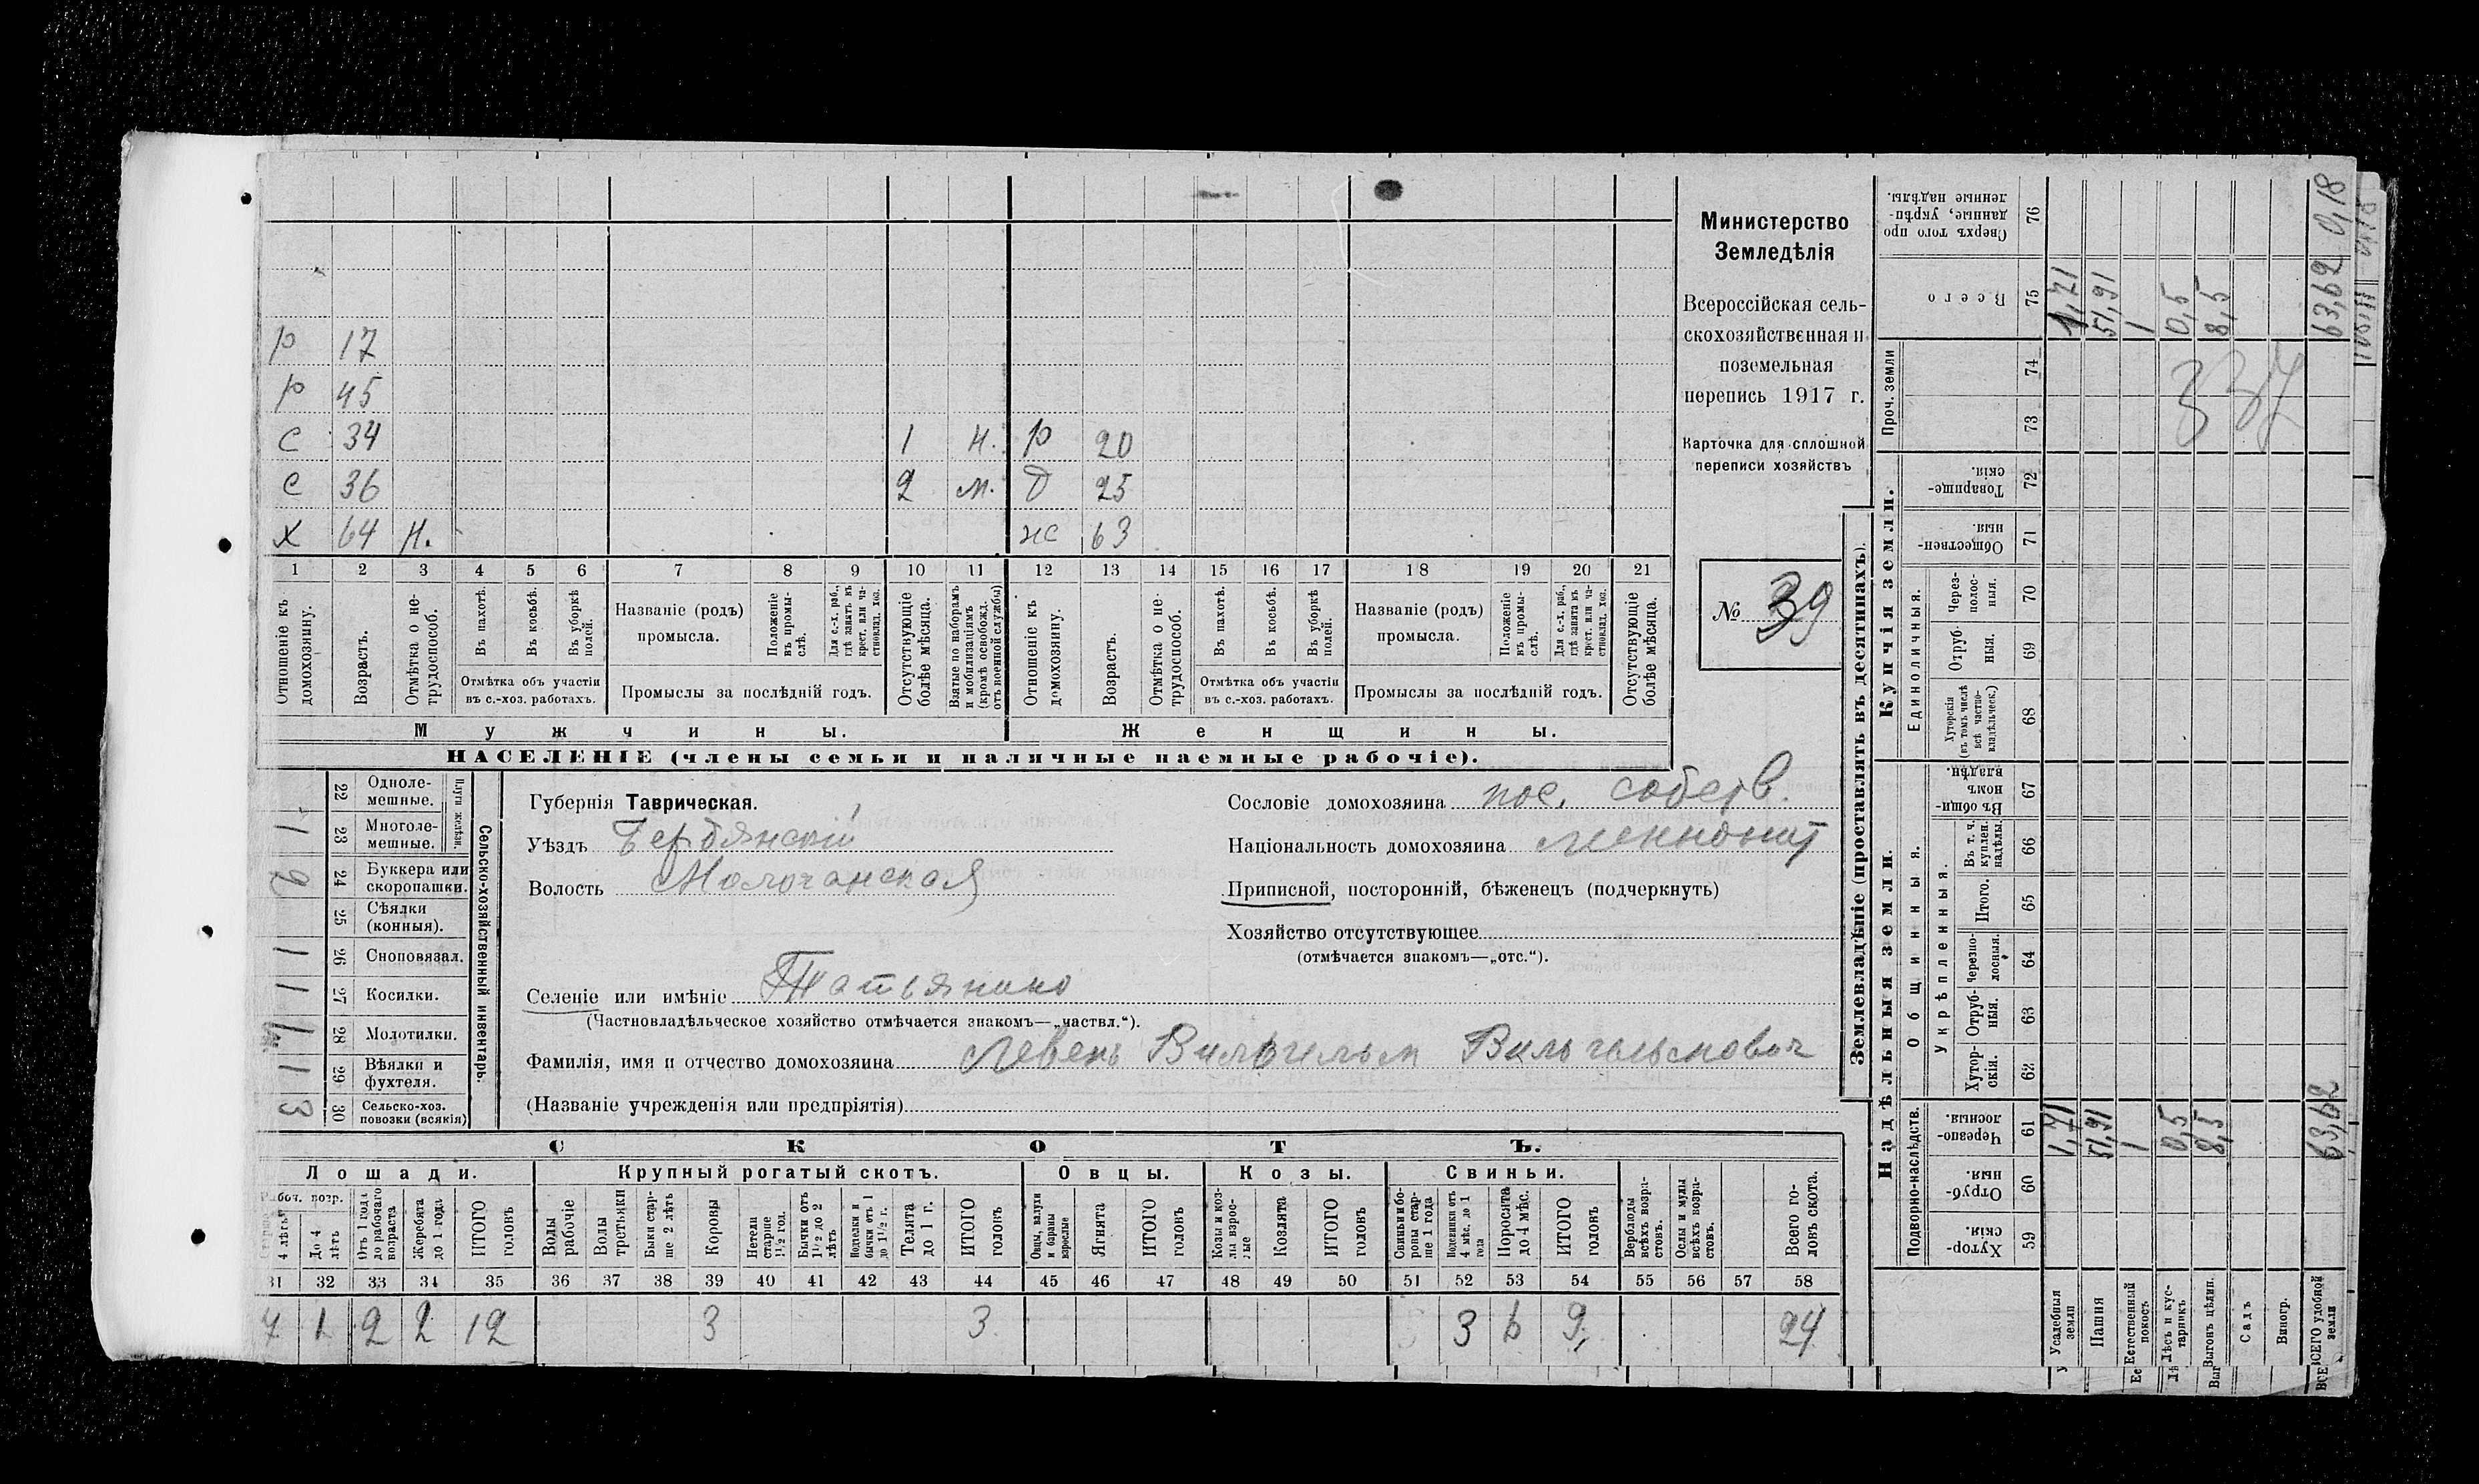 Р 17
Р 45
С 34 1 Н. Р 20
С 36 2 М. Д 25
Х 64 Н. Ж 63
1 2 3 4 5 6 7 8 9 10 11 12 13 14 15 16 17 18 19 20 21
Отношеніе къ домохозяину.
Возрастъ.
Отмѣтка о нетрудоспособ.
Въ пахотѣ.
Въ косьбѣ.
Въ уборкѣ полей.
Отмѣтка объ участіи въ с.-хоз. работахъ.
Названіе (родъ) промысла.
Положеніе въ промыслѣ.
Для с.-х. раб., гдѣ занятъ въ крест. или частновлад. хоз.
Промыслы за послѣдній годъ.
Отсутствующіе болѣе мѣсяца.
Взятые по наборамъ и мобилизаціямъ (кромѣ освобожд. отъ военной службы)
Отношеніе къ домохозяину.
Возрастъ.
Отмѣтка о нетрудоспособ.
Въ пахотѣ.
Въ косьбѣ.
Въ уборкѣ полей.
Отмѣтка объ участіи въ с.-хоз. работахъ.
Названіе (родъ) промысла.
Положеніе въ промыслѣ.
Для с.-х. раб., гдѣ занята въ крест. или частновлад. хоз.
Промыслы за послѣдній годъ.
Отсутствующіе болѣе мѣсяца.
Мужчины. Женщины.
НАСЕЛЕНІЕ (члены семьи и наличные наемные рабочіе).
Министерство
Земледѣлія
Всероссійская сель-
скохозяйственная и
поземельная
перепись 1917 г.
Карточка для сплошной
переписи хозяйствъ
№ 39
Сельско-хозяйственный инвентарь.
Плуги желѣзн.
22 Одноле-мешные.
23 Многоле-мешные. 1
24 Буккера или скоропашки. 2
25 Сѣялки (конныя).
26 Сноповязал. 1
27 Косилки. 1
28 Молотилки. 1
29 Вѣялки и фухтеля. 1
30 Сельско-хоз. повозки (всякія) 3
Губернія Таврическая.
Уѣздъ Бердянскій
Волость Молочанская
Селеніе или имѣніе Татьянино
(Частновладѣльческое хозяйство отмѣчается знакомъ—„частвл.“).
Фамилія, имя и отчество домохозяина Левенъ Вильгельм Вильгельмович
(Названіе учрежденія или предпріятія)
Сословіе домохозяина пос. собств.
Національность домохозяина меннонит
Приписной, посторонній, бѣженецъ (подчеркнуть)
Хозяйство отсутствующее
(отмѣчается знакомъ—„отс.“).
СКОТЪ.
Лошади. Крупный рогатый скотъ. Овцы. Козы. Свиньи.
Рабоч. возр.
4 лѣтъ
До 4 лѣтъ
Отъ 1 года до рабочаго возраста
Жеребята до 1 года
ИТОГО головъ
Волы рабочіе
Волы третьяки
Быки старше 2 лѣтъ
Коровы
Нетели старше 1½ год.
Бычки отъ 1½ до 2 лѣтъ
Подтелки и бычки отъ 1 до 1½ г.
Телята до 1 г.
ИТОГО головъ
Овцы, валухи и бараны взрослые
Ягнята
ИТОГО головъ
Козы и козлы взрослые
Козлята
ИТОГО головъ
Свиньи и боровы старше 1 года
Подсвинки отъ 4 мѣс. до 1 года
Поросята до 4 мѣс.
ИТОГО головъ
Верблюды всѣхъ возрастовъ.
Ослы и мулы всѣхъ возрастовъ.
Всего головъ скота.
31 32 33 34 35 36 37 38 39 40 41 42 43 44 45 46 47 48 49 50 51 52 53 54 55 56 57 58
7 1 2 2 12 3 3 3 6 9 24
Землевладѣніе (проставлять въ десятинахъ).
Купчія земли.
Надѣльныя земли.
Проч. земли
Единоличныя.
Общинныя.
Укрѣпленныя.
Подворно-наслѣдств.
Сверхъ того проданные, укрѣпленные надѣлы. 76
Всего 75
74
73
Товарищескія. 72
Общественныя. 71
Черезполосныя. 70
Отрубныя. 69
Хуторскія (въ томъ числѣ всѣ частновладѣльческ.) 68
Въ общинномъ владѣн. 67
Въ т. ч. куплен. надѣлы. 66
Итого. 65
Черезполосныя. 64
Отрубныя. 63
Хуторскія. 62
Черезполосныя. 61
Отрубныя. 60
Хуторскія. 59
Усадебныя земли 1,71 1,71
Пашня 51,91 51,91
Естественный покосъ 1 1
Лѣсъ и кустарникъ 0,5 0,5
Выгонъ цѣлин. 8,5 8,5
Садъ
Виногр.
ВСЕГО удобной земли 63,62 63,62 0,18